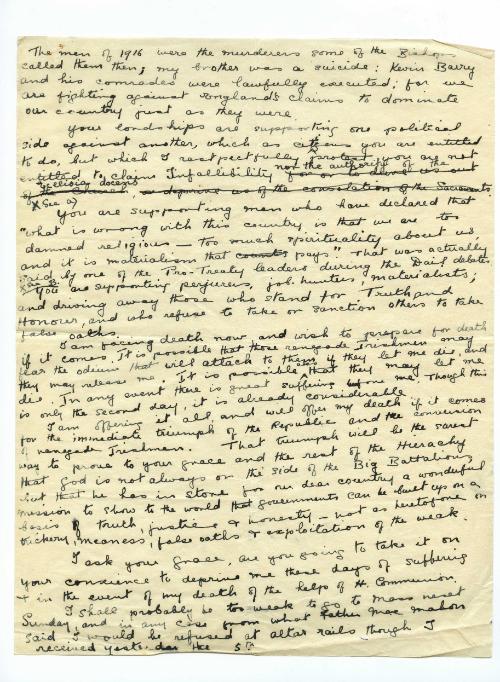 The men of 1916 were the murderers some of the Bishops
called them then; my brother was a suicide; Kevin Barry
and his comrades were lawfully executed; for we
are fighting against England's claims to dominate
our country just as they were.
Your lordships are supporting one political
side against another, which as citizens you are entitled
to do, but which I respectfully protest you are not
entitled to claim Infallibility for or to drive us out
not the authority of the
Ecclesia docens
of the Church, or deprive us of the consolation of the Sacraments.
X See a)
You are supporting men who have declared that
"what is wrong with this country is that we are too
damned religious — too much spirituality about us,
and it is materialism that counts pays". That was actually
said by one of the Pro-Treaty leaders during the Dail debates
See B.
You are supporting perjurers, job-hunters, materialists,
and driving away those who stand for Truth and
Honour, and who refuse to take or sanction others to take
false oaths.
I am facing death now, and wish to prepare for death
if it comes. It is possible that those renegade Irishmen may
fear the odium that will attach to them if they let me die, and
they may release me. It is possible also that they may let me
die. In any event there is great suffering before me. Though this
is only the second day, it is already considerable.
I am offering it all, and will offer my death if it comes
for the immediate triumph of the Republic and the conversion
of renegade Irishmen. That triumph will be the surest
way to prove to your grace and the rest of the Hierachy
that God is not always on the side of the Big Battalions,
but that he has in store for our dear country a wonderful
mission to show to the world that governments can be built up on a
basis of truth, justice & honesty — not as heretofore on
trickery, meaness, false oaths & exploitation of the weak.
I ask your Grace, are you going to take it on
your conscience to deprive me these days of suffering
& in the event of my death of the help of H. Communion.
I shall probably be too weak to go to Mass next
Sunday, and in any case from what Father Mac Mahon
said I would be refused at altar rails though I
received yesterday the 5th